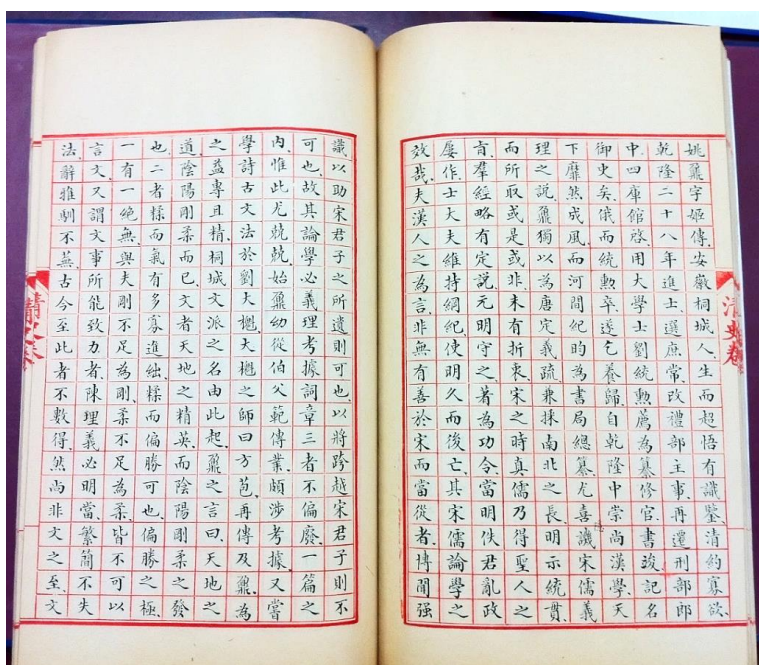 姚鼐字姬傳、安徽桐城人、生而超悟有識鑒、清約寡欲、
乾隆二十八年進士、選庶常、改禮部主事、再遷刑部郎
中、四庫館啓、用大學士劉統勲薦為纂修官、書竣、記名
御史矣、俄而統勲卒、遂乞養歸、自乾隆中崇尚漢學、天
下靡然成風、而河間紀昀為書局總纂、尤喜譏宋儒義
理之説、鼐獨以為唐定義疏、兼採南北之長、明示統貫、
而所取或是或非、未有折衷、宋之時真儒乃得聖人之
旨、羣經略有定説、元明守之、著為功令、當明佚君亂政
屢作、士大夫維持綱紀、使明久而後亡、其宋儒論學之
效哉、夫漢人之為言、非無有善於宋而當從者、博聞强
識以助宋君子之所遺則可也、以將跨越宋君子則不
可也、故其論學必義理考據詞章三者不偏廢、一篇之
内、惟此尤兢兢、始鼐幼從伯父範傳業、頗涉考據、又嘗
學詩古文法於劉大櫆、大櫆之師曰方苞、再傳及鼐、為
之益專且精、桐城文派之名由此起、鼐之言曰、天地之
道、陰陽剛柔而已、文者天地之精英、而陰陽剛柔之發
也、二者糅而氣有多寡進絀、糅而偏勝可也、偏勝之極、
一有一絕無、與夫剛不足為剛、柔不足為柔、皆不可以
言文、又謂文事所能致力者、陳理義必明當、繁簡不失
法、辭雅馴不蕪、古今至此者不數得、然尚非文之至、文
清史卷
清史卷